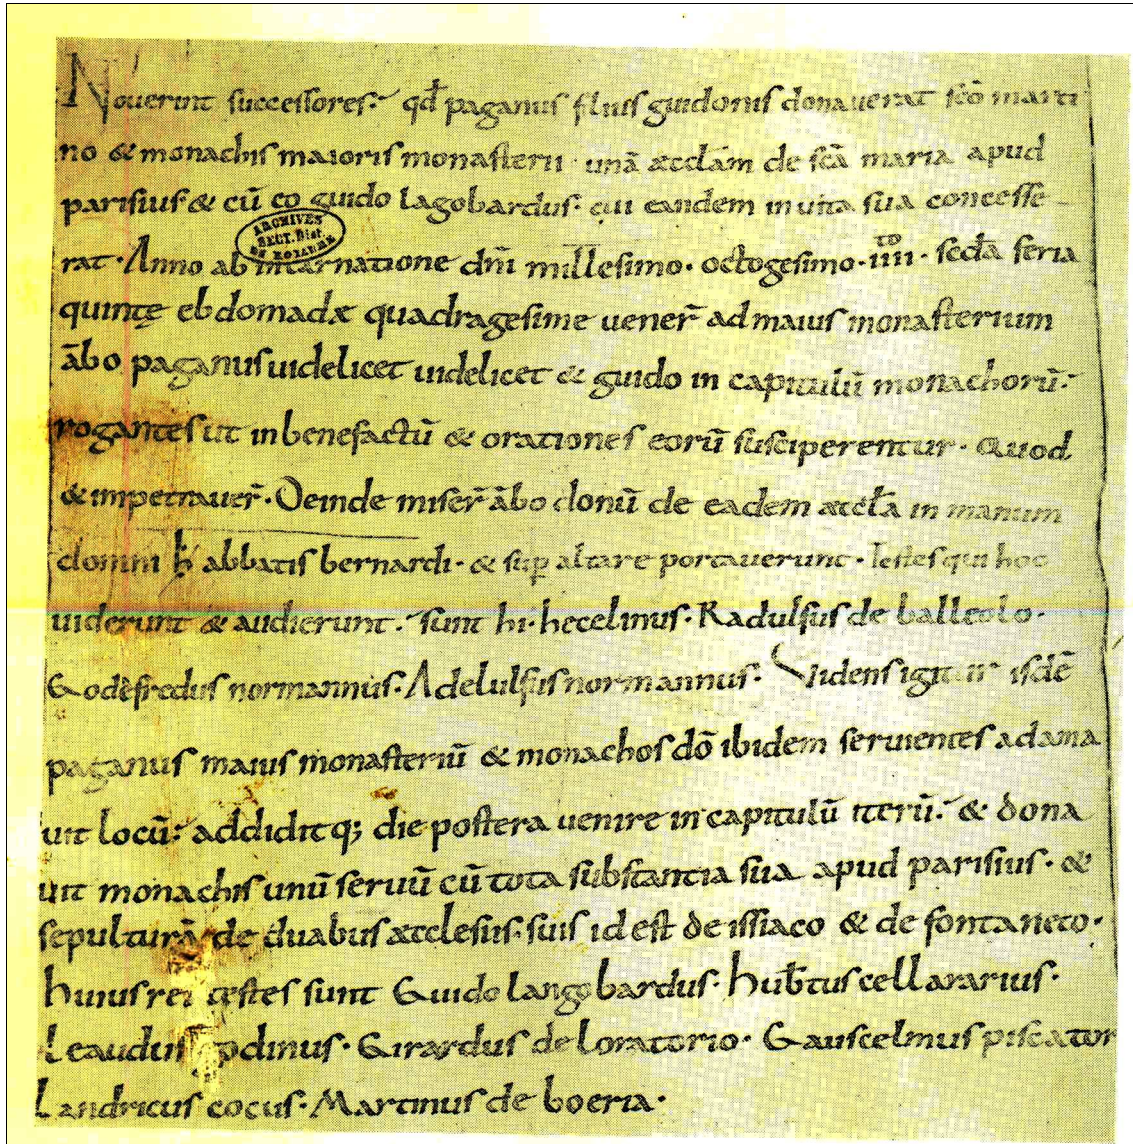 Nouerint successores· qd̄ paganus filius guidonis donauerat sc̄o marti
no & monachis maioris monasterii· unā æccl̄am de sc̄a maria apud
parisius· & cū eo guido lagobardus· qui eandem in uita sua concesse
rat· Anno ab incarnatione dn̄i millesimo· octogesimo· iiii^to· sc̄da feria
quintę ebdomadæ quadragesime uener̄ ad maius monasterium
ābo paganus uidelicet uidelicet & guido in capitulū monachorū·
rogantes ut in benefactū & orationes eorū susciperentur· Quod
& impetrauer̄· Deinde miser̄ ābo donū de eadem æccl̄a in manum
domni abbatis bernardi· & sup̱ altare portauerunt· Testes qui hoc
uiderunt & audierunt· sunt hi· hecelinus· Radulfus de balleolo·
Godefredus normannus· Adelulfus normannus· Uidens igitur isdē
paganus maius monasteriū & monachos dō ibidem seruientes adama
uit locū· addiditq; die postera uenire in capitulū iterū· & dona
uit monachis unū seruū cū tota substantia sua apud parisius· &
sepulturā de duabus æcclesiis· suis id est de issiaco & de fontaneto·
huius rei testes sunt Guido langobardus· hub̄tus cellararius·
Leaudus Girardus de loratorio· Gauscelmus piscator
Landricus cocus· Martinus de boeria·
ARCHIVES
SECT. Hist